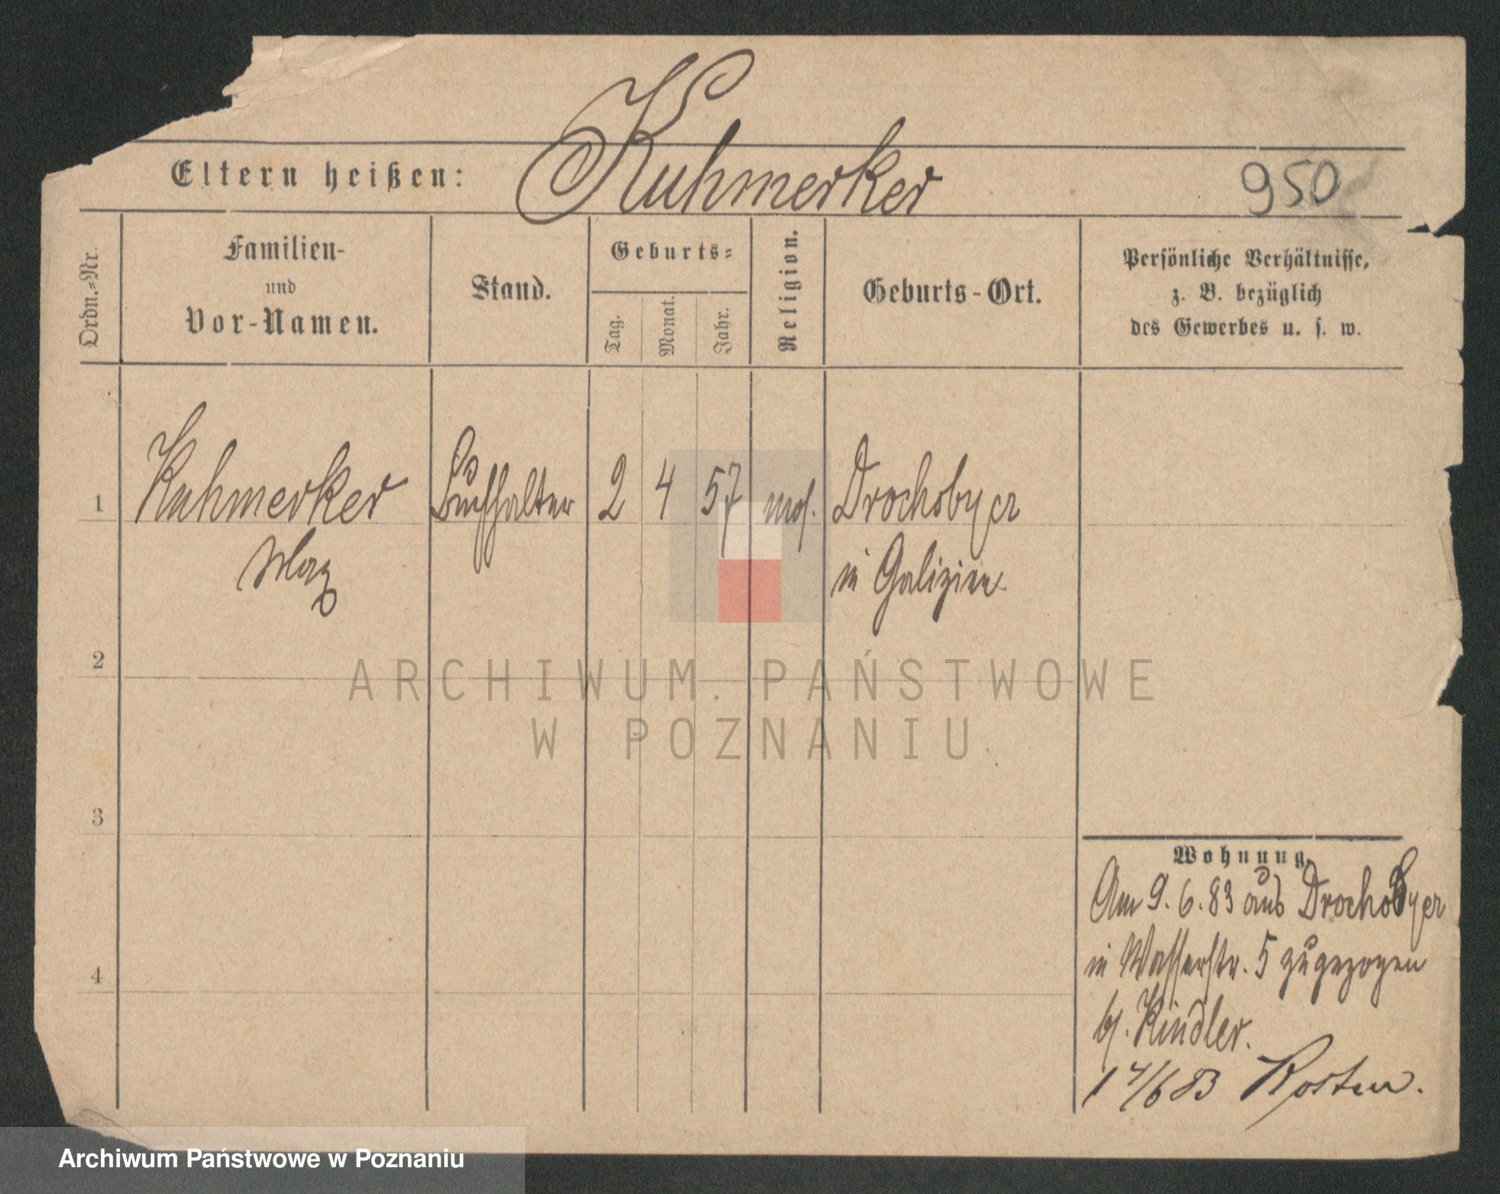 Kuhmerker
Eltern heißen:
950
Ordn.-Nr.
Familien-
und
Vor-Namen.
Stand.
Geburts-
Tag.
Monat.
Jahr.
Religion.
Geburts-Ort.
Persönliche Verhältnisse,
z. B. bezüglich
des Gewerbes u. s. w.
1 Kuhmerker Buchhalter 2 4 57 mos. Drochobycz
Max in Galizien
2
3
4
Wohnung
Am 9.6.83 aus Drochobycz
in Wasserstr. 5 zugezogen
b/. Kindler.
17/6 83 Kosten.
ARCHIWUM PAŃSTWOWE
W POZNANIU
Archiwum Państwowe w Poznaniu